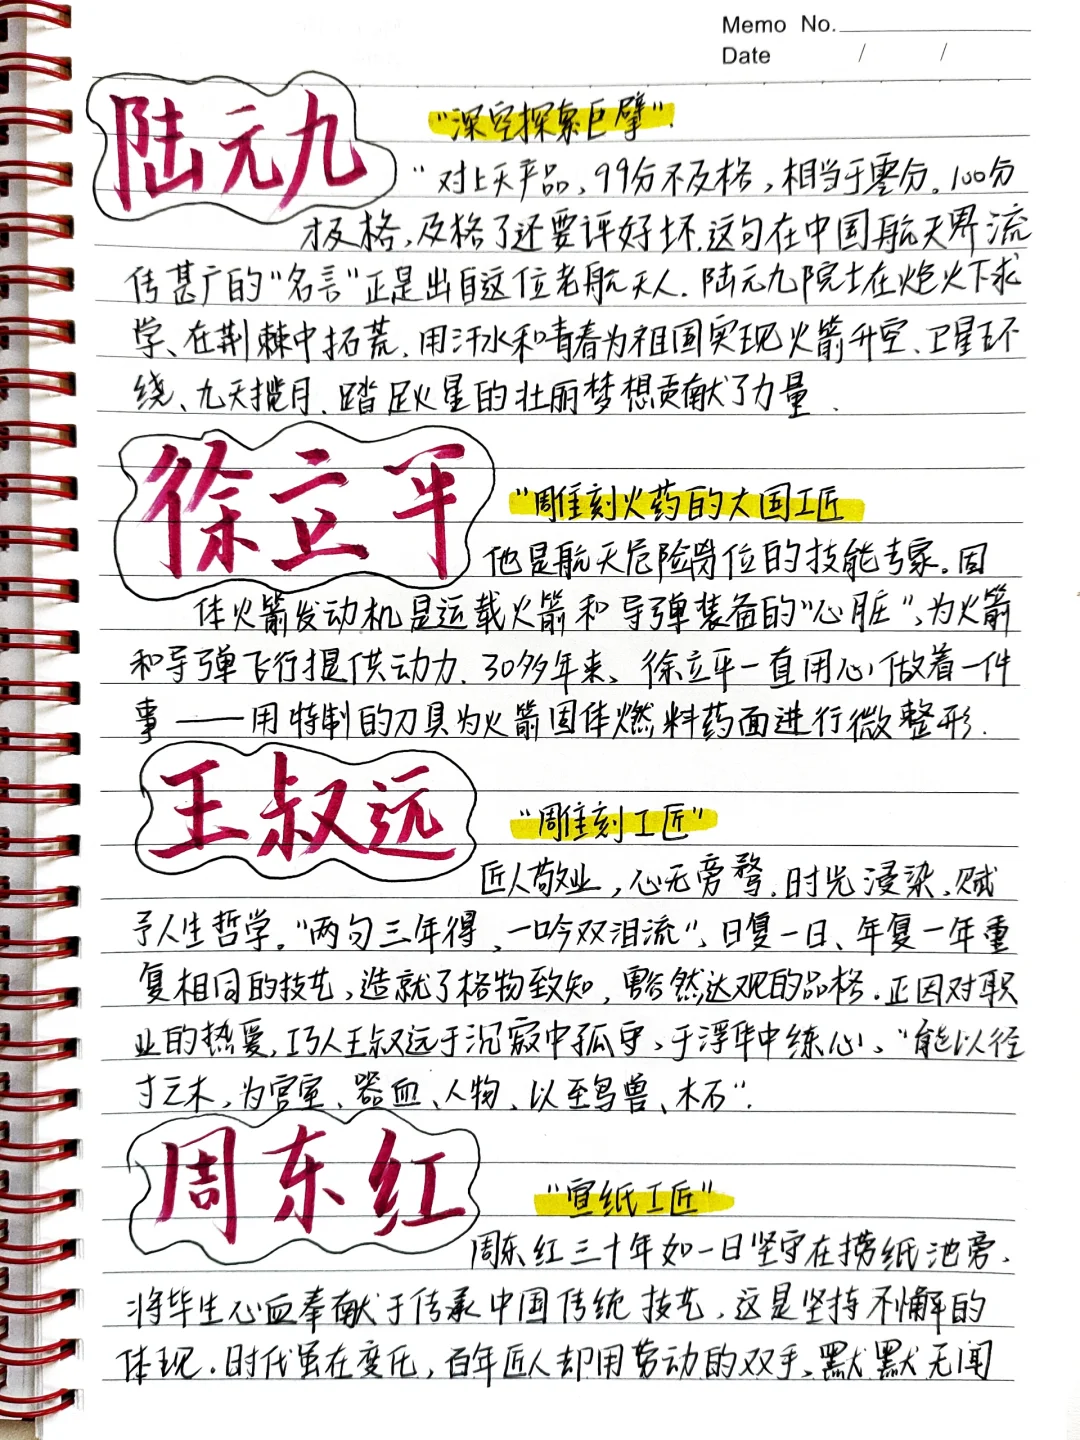 Memo No.
Date / /
陆元九
"深空探索巨擘"
"对上天产品，99分不及格，相当于零分。100分
才及格，及格了还要评好坏.这句在中国航天界流
传甚广的"名言"正是出自这位老航天人.陆元九院士在炮火下求
学、在荆棘中拓荒.用汗水和青春为祖国实现火箭升空、卫星环
绕、九天揽月、踏足火星的壮丽梦想贡献了力量.
徐立平
"雕刻火药的大国工匠
他是航天危险岗位的技能专家。固
体火箭发动机是运载火箭和导弹装备的"心脏",为火箭
和导弹飞行提供动力.30多年来、徐立平一直用心做着一件
事——用特制的刀具为火箭固体燃料药面进行微整形.
王叔远
"雕刻工匠"
匠人敬业，心无旁骛.时光浸染、赋
予人生哲学。"两句三年得，一吟双泪流"、日复一日、年复一年重
复相同的技艺,造就了格物致知，豁然达观的品格.正因对职
业的热爱,巧人王叔远于沉寂中孤守、于浮华中练心、"能以径
寸之木,为宫室、器皿、人物、以至鸟兽、木石".
周东红
"宣纸工匠"
周东红三十年如一日坚守在捞纸池旁、
将毕生心血奉献于传承中国传统技艺，这是坚持不懈的
体现.时代虽在变化，百年匠人却用劳动的双手、默默无闻